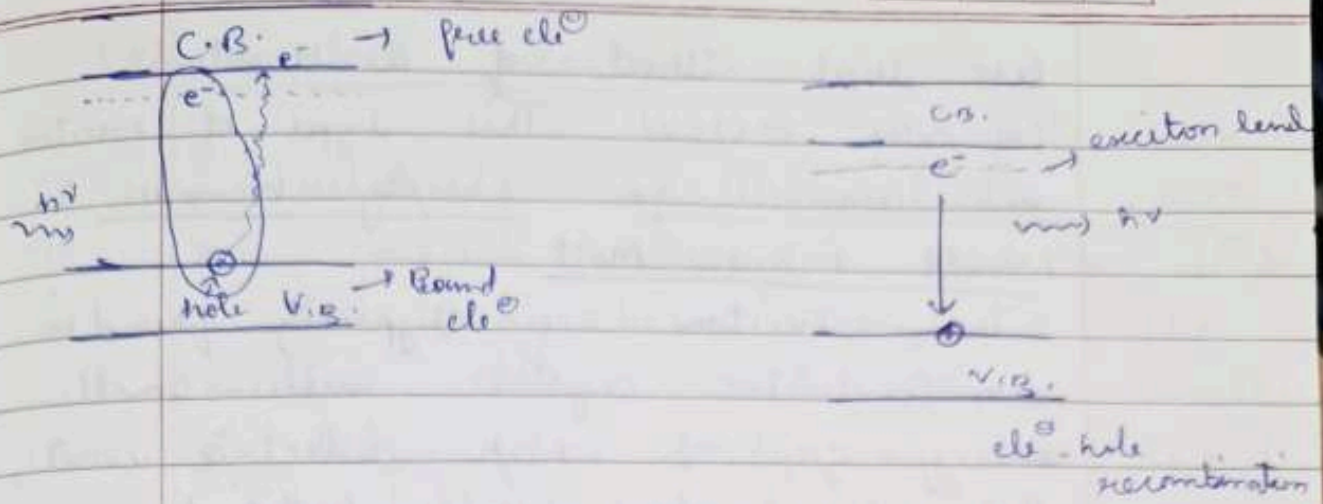 C.B. → free ele⊖
e⁻
e⁻
hν
hole V.B. → Bound
ele⊖
C.B.
e⁻ → exciton level
hν
V.B.
ele⊖-hole
recombination